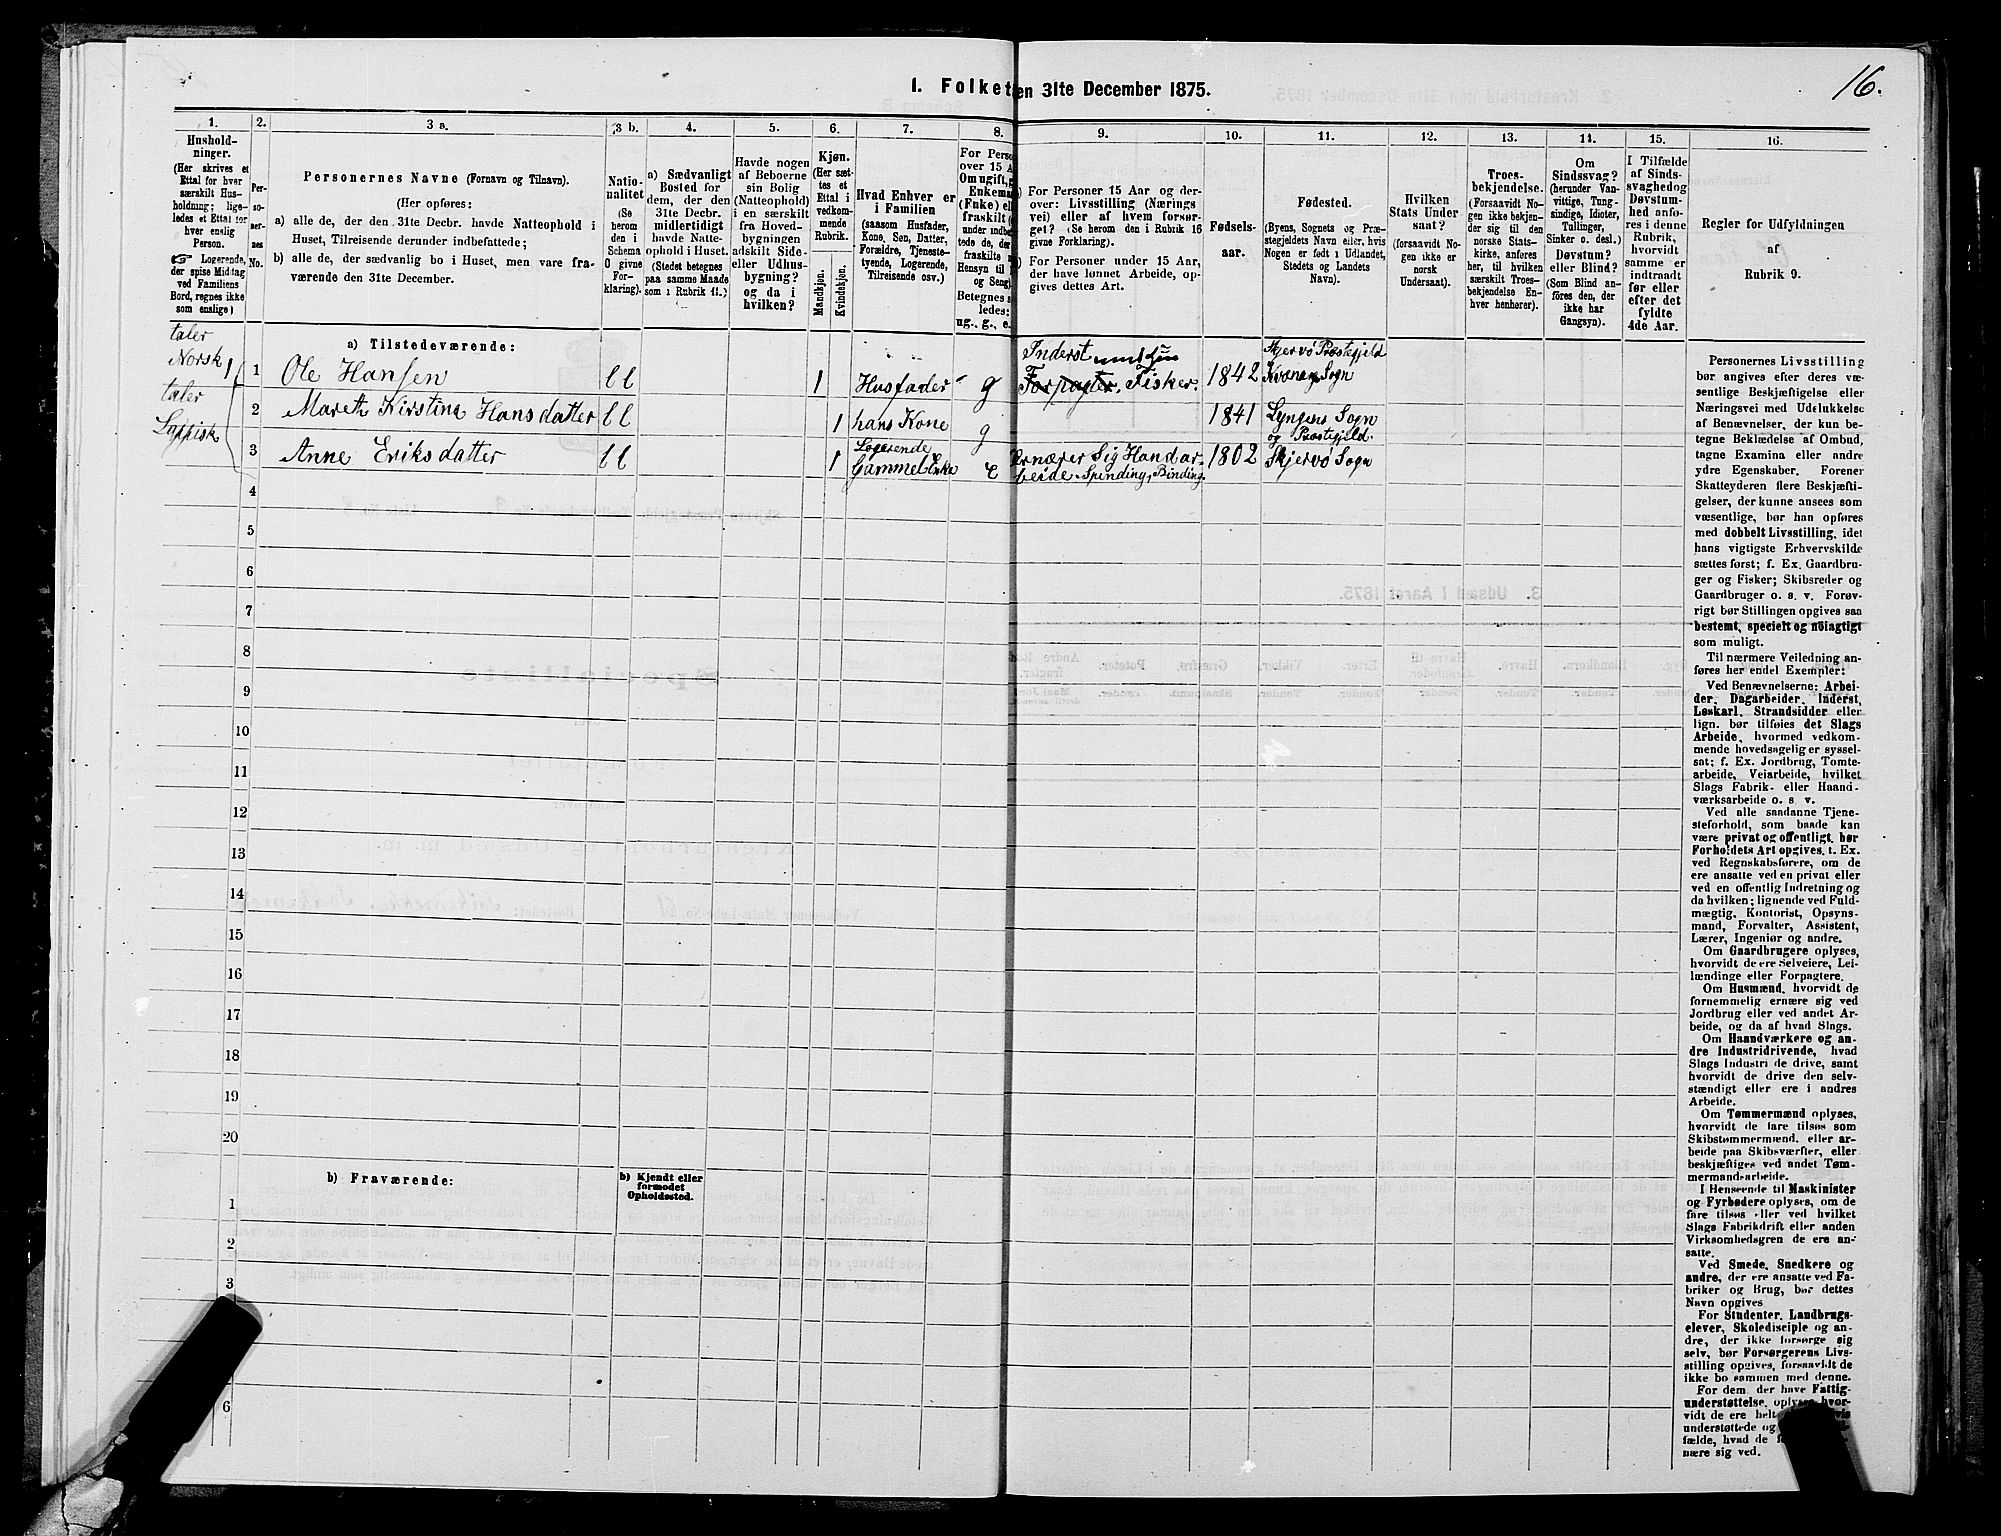 16.
I. Folket en 31te December 1875.
1.
Hushold-
ninger.
(Her skrives et
Ettal for hver
særskilt Hus-
holdning; lige-
ledes et Ettal for
hver enslig
Person.
☞ Logerende,
der spise Middag
ved Familiens
Bord, regnes ikke
som enslige)
2.
Per-
so-
ner-
nes
No.
3 a.
Personernes Navne (Fornavn og Tilnavn).
(Her opføres:
a) alle de, der den 31te Decbr. havde Natteophold i
Huset, Tilreisende derunder indbefattede;
b) alle de, der sædvanlig bo i Huset, men vare fra-
værende den 31te December.
3 b.
Natio-
nalitet
(Se
herom
den i
Schema
O givne
For-
klaring).
4.
a) Sædvanligt
Bosted for
dem, der den
31te Decbr.
midlertidigt
havde Natte-
ophold i Huset.
(Stedet betegnes
paa samme Maade
som i Rubrik 11.)
5.
Havde nogen
af Beboerne
sin Bolig
(Natteophold)
i en særskilt
fra Hoved-
bygningen
adskilt Side-
eller Udhus-
bygning?
og da i
hvilken?
6.
Kjøn.
(Her sæt-
tes et
Ettal i
vedkom-
mende
Rubrik.
Mandkjøn.
Kvindekjøn.
7.
Hvad Enhver er
i Familien
(saasom Husfader,
Kone, Søn, Datter,
Forældre, Tjeneste-
tyende, Logerende,
Tilreisende osv.)
8.
For Perso
over 15 A
Om ugift, g
Enkema
(Enke) ell
fraskilt (
under indb
tede de, de
fraskilte
Hensyn til
og Seng)
Betegnes s
ledes:
ug., g., e.
9.
) For Personer 15 Aar og der-
over: Livsstilling (Nærings
vei) eller af hvem forsør-
get? (Se herom den i Rubrik 16
givne Forklaring).
) For Personer under 15 Aar,
der have lønnet Arbeide, op-
gives dettes Art.
10.
Fødsels-
aar.
11.
Fødested.
(Byens, Sognets og Præ-
stegjeldets Navn eller, hvis
Nogen er født i Udlandet,
Stedets og Landets
Navn).
12.
Hvilken
Stats Under
saat?
(forsaavidt No-
gen ikke er
norsk
Undersaat).
13.
Troes-
bekjendelse.
(Forsaavidt No-
gen ikke bekjen-
der sig til den
norske Stats-
kirke, anføres
her, til hvilken
særskilt Troes-
bekjendelse En-
hver henhører).
14.
Om
Sindssvag?
(herunder Van-
vittige, Tung-
sindige, Idioter,
Tullinger,
Sinker o. desl.)
Døvstum?
eller Blind?
(Som Blind an-
føres den, der
ikke har
Gangsyn).
15.
I Tilfælde
af Sinds-
svaghed og
Døvstum-
hed anfø-
res i denne
Rubrik,
hvorvidt
samme er
indtraadt
før eller
efter det
fyldte
4de Aar.
16.
Regler for Udfyldningen
af
Rubrik 9.
a) Tilstedeværende:
taler
Norsk 1
taler
Lappisk
1 Ole Hansen ll 1 Husfader g Inderst Forpagter, Fisker. 1842 Skjervø Præstegjeld Kvænangs Sogn
2 Mareth Kirstina Hansdatter ll 1 hans Kone g 1841 Lyngens Sogn og Præstegjeld.
3 Anne Eriksdatter ll 1 Logerende Gammel Enke e Ernærer Sig Handar- beide, Spinding, Binding. 1802 Skjervø Sogn
4
5
6
7
8
9
10
11
12
13
14
15
16
17
18
19
20
b) Fraværende:
b) Kjendt eller
formodet
Opholdssted.
1
2
3
6
Personernes Livsstilling
bør angives efter deres væ-
sentlige Beskjæftigelse eller
Næringsvei med Udelukkelse
af Benævnelser, der kun be-
tegne Beklædelse af Ombud,
tagne Examina eller andre
ydre Egenskaber. Forener
Skatteyderen flere Beskjæfti-
gelser, der kunne ansees som
væsentlige, bør han opføres
med dobbelt Livsstilling, idet
hans vigtigste Erhvervskilde
sættes først; f. Ex. Gaardbru-
ger og Fisker; Skibsreder og
Gaardbruger o. s. v. Forøv-
rigt bør Stillingen opgives saa
bestemt, specielt og nøiagtigt
som muligt.
Til nærmere Veiledning an-
føres her endel Exempler:
Ved Benævnelserne: Arbei-
der, Dagarbeider, Inderst,
Løskarl, Strandsidder eller
lign. bør tilføies det Slags
Arbeide, hvormed vedkom-
mende hovedsagelig er syssel-
sat; f. Ex. Jordbrug, Tomte-
arbeide, Veiarbeide, hvilket
Slags Fabrik- eller Haand-
værksarbeide o. s. v.
Ved alle saadanne Tjene-
steforhold, som baade kan
være privat og offentligt, bør
Forholdets Art opgives, t. Ex.
ved Regnskabsførere, om de
ere ansatte ved en privat eller
ved en offentlig Indretning og
da hvilken; lignende ved Fuld-
mægtig, Kontorist, Opsyns-
mand, Forvalter, Assistent,
Lærer, Ingeniør og andre.
Om Gaardbrugere oplyses,
hvorvidt de ere Selveiere, Lei-
lændinge eller Forpagtere.
Om Husmænd, hvorvidt de
fornemmelig ernære sig ved
Jordbrug eller ved andet Ar-
beide, og da af hvad Slags.
Om Haandværkere og an-
dre Industridrivende, hvad
Slags Industri de drive, samt
hvorvidt de drive den selv-
stændigt eller ere i andres
Arbeide.
Om Tømmermænd oplyses,
hvorvidt de fare tilsøs som
Skibstømmermænd, eller ar-
beide paa Skibsværfter, eller
beskjæftiges ved andet Tøm-
mermandsarbeide.
I Henseende til Maskinister
og Fyrbødere oplyses, om de
fare tilsøs eller ved hvilket
Slags Fabrikdrift eller anden
Virksomhedsgren de ere an-
satte.
Ved Smede, Snedkere og
andre, der ere ansatte ved Fa-
briker og Brug, bør dettes
Navn opgives
For Studenter, Landbrugs-
elever, Skoledisciple og an-
dre, der ikke forsørge sig
selv, bør Forsørgerens Livs-
stilling opgives, forsaavidt de
ikke bo sammen med denne.
For dem, der have Fattig-
understøttelse, oplyses hvor-
vidt de ere helt
understøttede og
fælde, hvad de
nære sig ved.